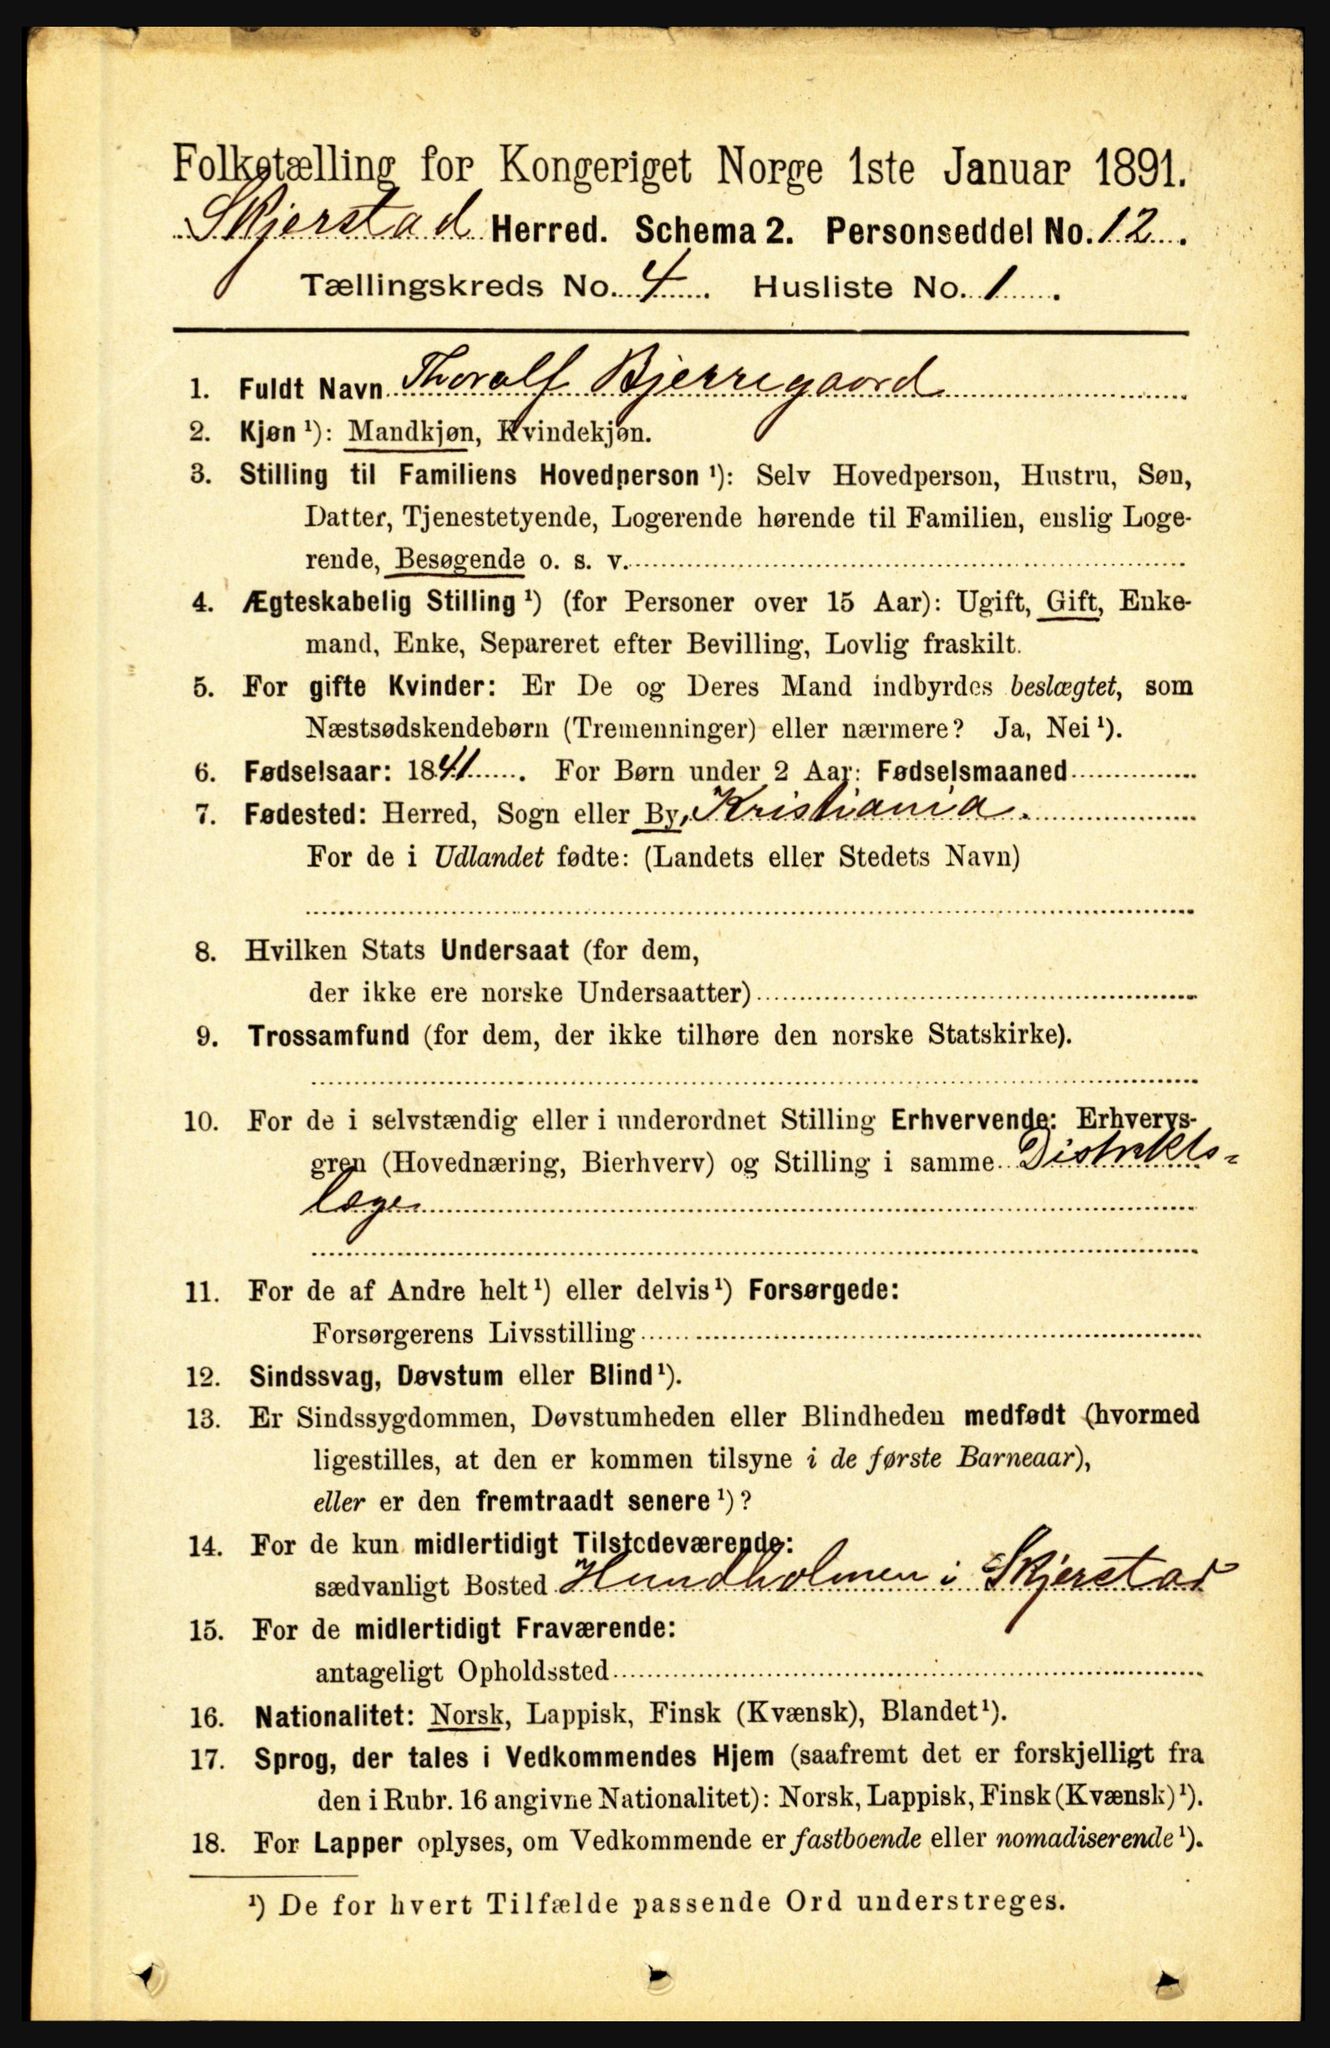 Folketælling for Kongeriget Norge 1ste Januar 1891.
Skjerstad Herred. Schema 2. Personseddel No. 12.
Tællingskreds No. 4. Husliste No. 1.
1. Fuldt Navn Thoralf Bjerregaard
2. Kjøn ¹): Mandkjøn, Kvindekjøn.
3. Stilling til Familiens Hovedperson ¹): Selv Hovedperson, Hustru, Søn,
Datter, Tjenestetyende, Logerende hørende til Familien, enslig Loge-
rende, Besøgende o. s. v.
4. Ægteskabelig Stilling ¹) (for Personer over 15 Aar): Ugift, Gift, Enke-
mand, Enke, Separeret efter Bevilling, Lovlig fraskilt.
5. For gifte Kvinder: Er De og Deres Mand indbyrdes beslægtet, som
Næstsødskendebørn (Tremenninger) eller nærmere? Ja, Nei ¹).
6. Fødselsaar: 1841. For Børn under 2 Aar: Fødselsmaaned
7. Fødested: Herred, Sogn eller By, Kristiania.
For de i Udlandet fødte: (Landets eller Stedets Navn)
8. Hvilken Stats Undersaat (for dem,
der ikke ere norske Undersaatter)
9. Trossamfund (for dem, der ikke tilhøre den norske Statskirke).
10. For de i selvstændig eller i underordnet Stilling Erhvervende: Erhvervs-
gren (Hovednæring, Bierhverv) og Stilling i samme Distrikts-
læge
11. For de af Andre helt ¹) eller delvis ¹) Forsørgede:
Forsørgerens Livsstilling
12. Sindssvag, Døvstum eller Blind ¹).
13. Er Sindssygdommen, Døvstumheden eller Blindheden medfødt (hvormed
ligestilles, at den er kommen tilsyne i de første Barneaar),
eller er den fremtraadt senere ¹)?
14. For de kun midlertidigt Tilstedeværende:
sædvanligt Bosted Hundholmen i Skjerstad
15. For de midlertidigt Fraværende:
antageligt Opholdssted
16. Nationalitet: Norsk, Lappisk, Finsk (Kvænsk), Blandet ¹).
17. Sprog, der tales i Vedkommendes Hjem (saafremt det er forskjelligt fra
den i Rubr. 16 angivne Nationalitet): Norsk, Lappisk, Finsk (Kvænsk) ¹).
18. For Lapper oplyses, om Vedkommende er fastboende eller nomadiserende ¹).
¹) De for hvert Tilfælde passende Ord understreges.